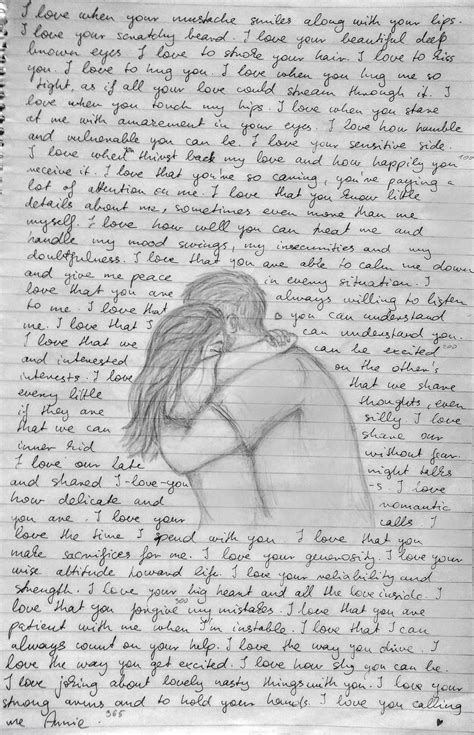 I love when your mustache smiles along with your lips.
I love your scratchy beard. I love your beautiful deep
brown eyes. I love to stroke your hair. I love to kiss
you. I love to hug you. I love when you hug me so
tight, as if all your love could stream through it. I
love when you touch my hips. I love when you stare
at me with amazement in your eyes. I love how humble
and vulnerable you can be. I love your sensitive side.
I love when thirst back my love and how happily you
receive it. I love that you're so caring, you're paying a
lot of attention on me. I love that you know little
details about me, sometimes even more than me
myself. I love how well you can treat me and
handle my mood swings, my insecurities and my
doubtfulness. I love that you are able to calm me down
and give me peace in every situation. I
love that you are always willing to listen
to me. I love that you can understand
me. I love that I can understand you.
I love that we can be excited
and interested on the other's
interests. I love that we share
every little thoughts, even
if they are silly. I love
that we can share our
inner kid without fear.
I love our late night talks
and shared I-love-you-s. I love
how delicate and romantic
you are. I love your calls. I
love the time I spend with you. I love that you
make sacrifices for me. I love your generosity. I love your
wise attitude toward life. I love your reliability and
strength. I love your big heart and all the love inside. I
love that you forgive my mistakes. I love that you are
patient with me when I'm instable. I love that I can
always count on your help. I love the way you drive. I
love the way you get excited. I love how shy you can be.
I love joking about lovely nasty things with you. I love your
strong arms and to hold your hands. I love you calling
me Annie. 365